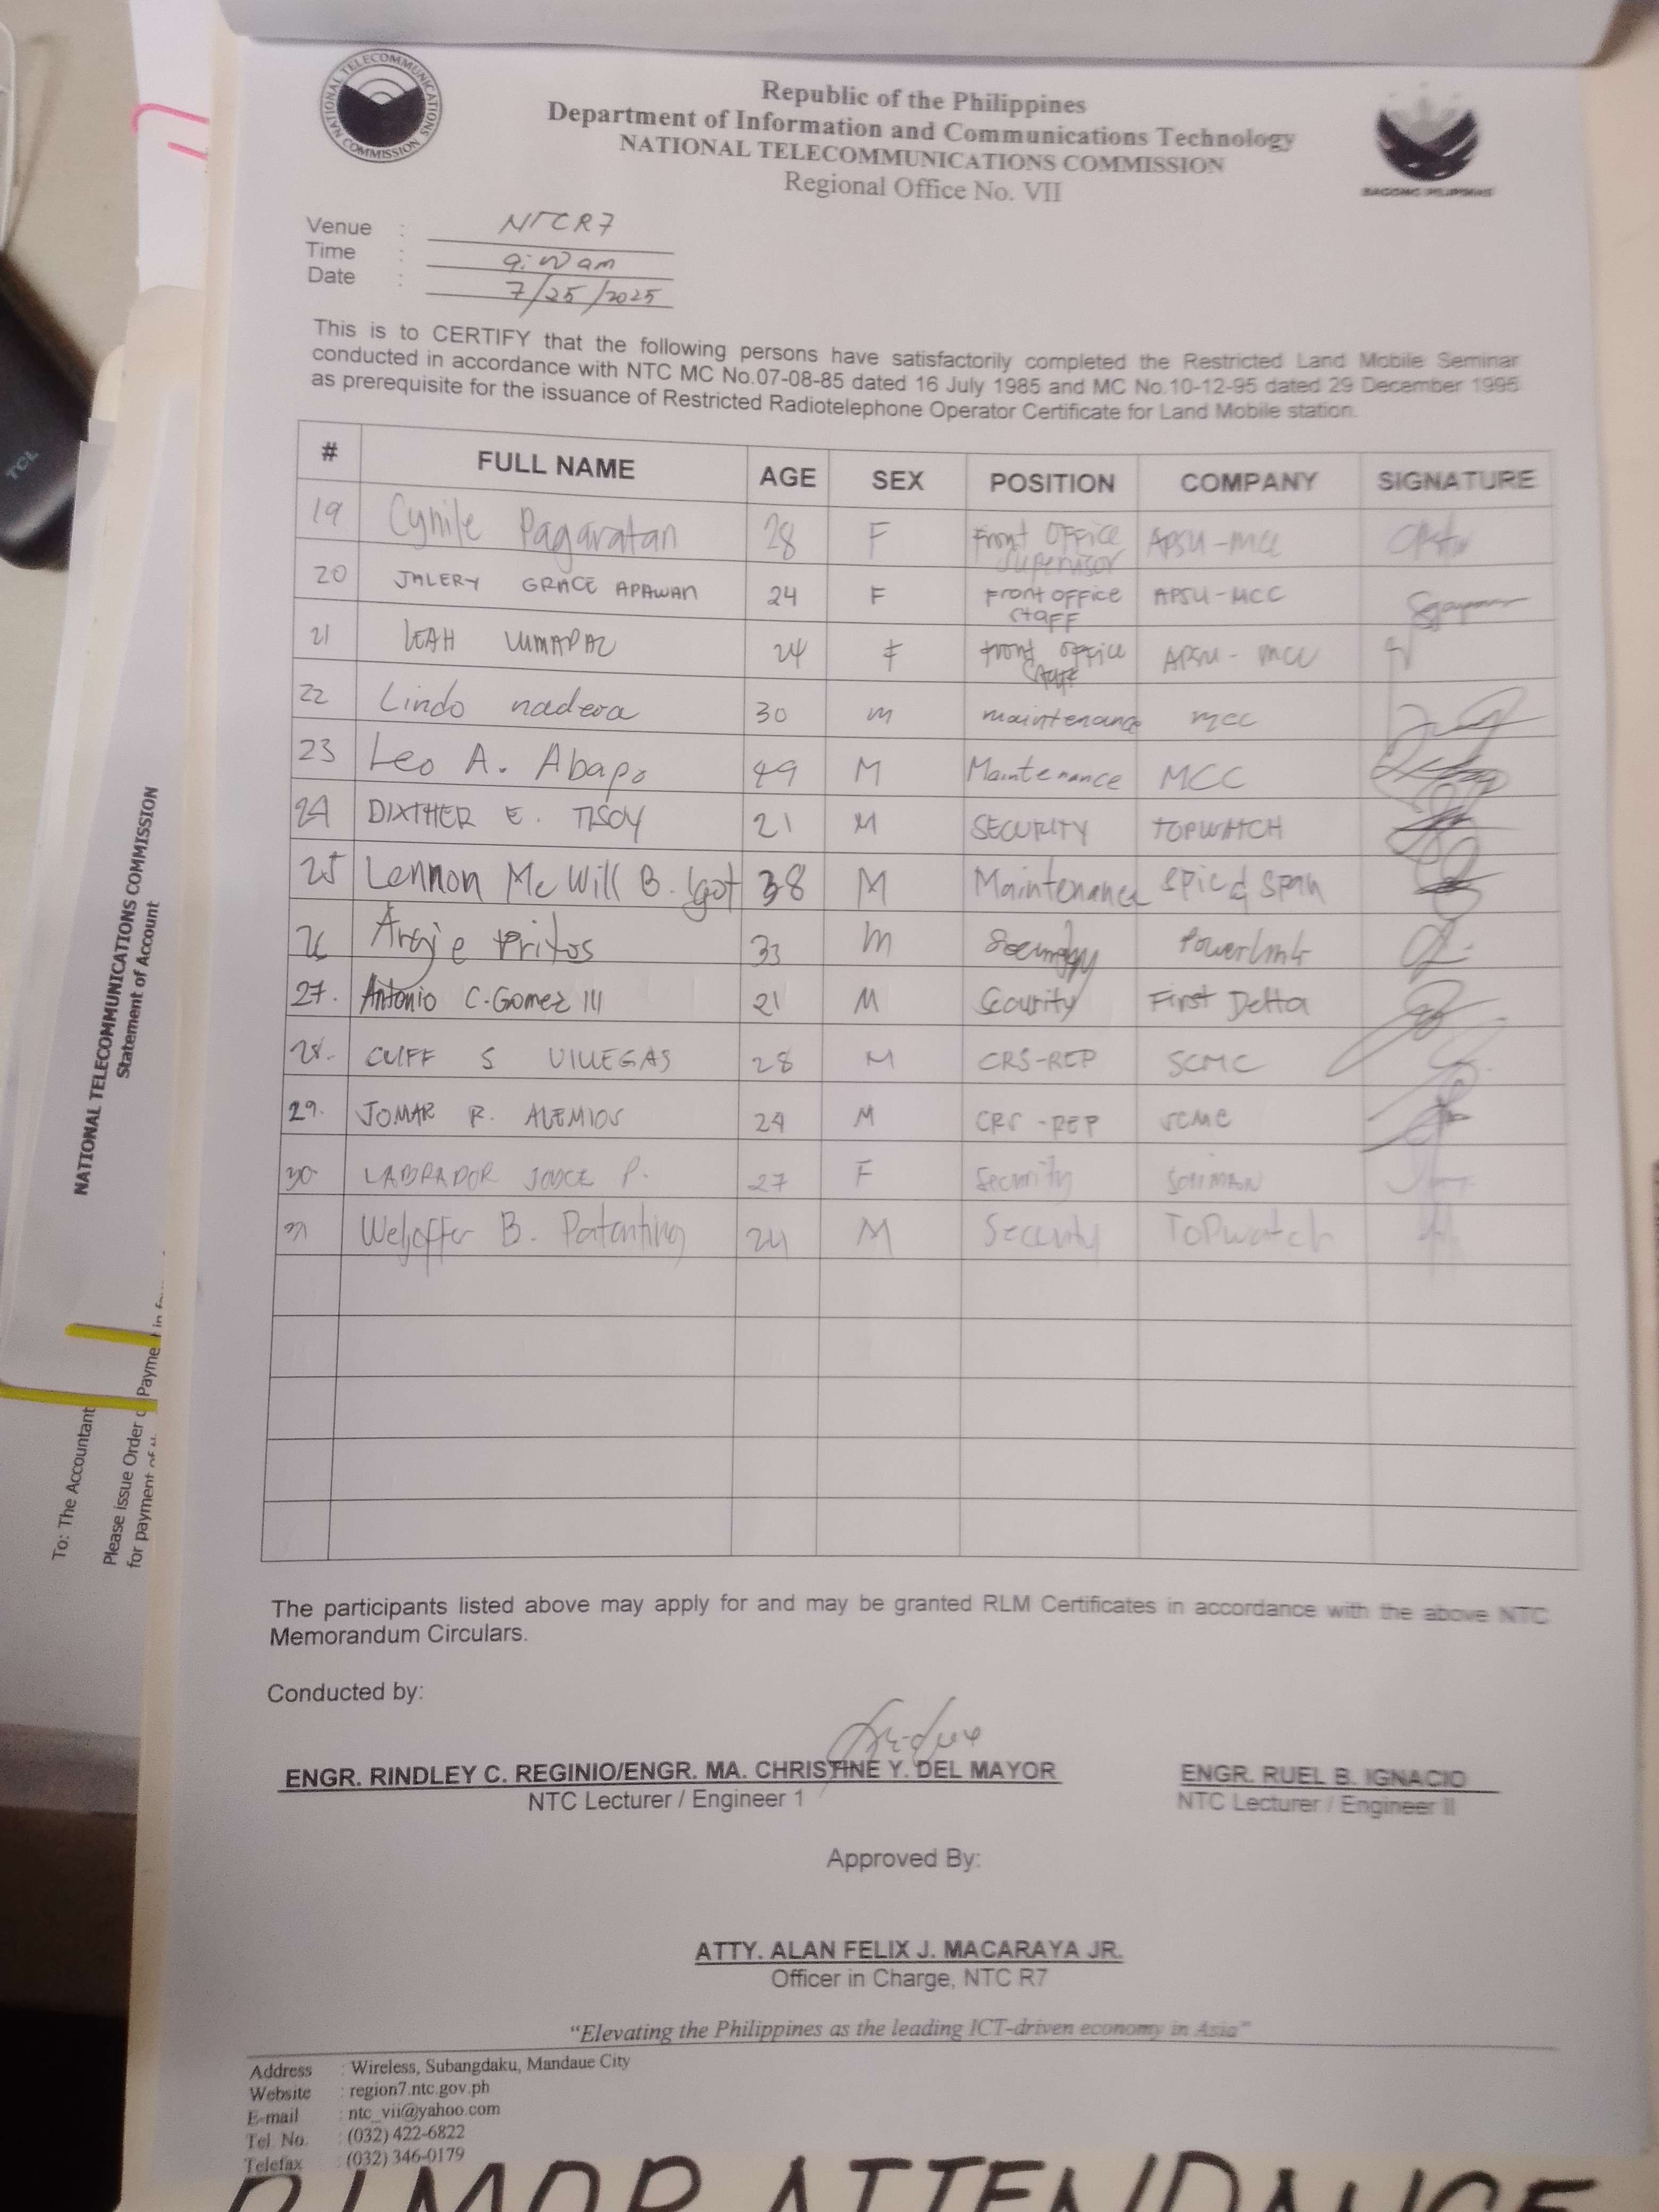 NATIONAL TELECOMMUNICATIONS COMMISSION
BAGONG PILIPINAS
Republic of the Philippines
Department of Information and Communications Technology
NATIONAL TELECOMMUNICATIONS COMMISSION
Regional Office No. VII
Venue : NTCR7
Time : 9:00 am
Date : 7/25/2025
This is to CERTIFY that the following persons have satisfactorily completed the Restricted Land Mobile Seminar
conducted in accordance with NTC MC No.07-08-85 dated 16 July 1985 and MC No.10-12-95 dated 29 December 1995
as prerequisite for the issuance of Restricted Radiotelephone Operator Certificate for Land Mobile station.
# FULL NAME AGE SEX POSITION COMPANY SIGNATURE
19 Cynile Pagaratan 28 F Front Office Supervisor APSU-MCC
20 JALERY GRACE APAWAN 24 F Front office Staff APSU-MCC
21 LEAH LUMAPAC 24 F front office staff APSU-MCC
22 Lindo nadera 30 m maintenance mcc
23 Leo A. Abapo 49 M Maintenance MCC
24 DIXTHER E. TISOY 21 M SECURITY TOPWATCH
25 Lennon Mc Will B. Igot 38 M Maintenance Spic & Span
26 Argie Pritos 33 m Powerlink
27. Antonio C. Gomez III 21 M Security First Delta
28. CLIFF S VILLEGAS 28 M CRS-REP SCMC
29. JOMAR R. ALEMIOS 24 M CRS-REP SCMC
30. LABRADOR JOYCE P. 27 F Security SOLIMAN
31 Weljoffer B. Patanting 24 M Security TOPwatch
The participants listed above may apply for and may be granted RLM Certificates in accordance with the above NTC
Memorandum Circulars.
Conducted by:
ENGR. RINDLEY C. REGINIO/ENGR. MA. CHRISTINE Y. DEL MAYOR
NTC Lecturer / Engineer 1
ENGR. RUEL B. IGNACIO
NTC Lecturer / Engineer II
Approved By:
ATTY. ALAN FELIX J. MACARAYA JR.
Officer in Charge, NTC R7
“Elevating the Philippines as the leading ICT-driven economy in Asia”
Address : Wireless, Subangdaku, Mandaue City
Website : region7.ntc.gov.ph
E-mail : ntc_vii@yahoo.com
Tel. No. : (032) 422-6822
Telefax : (032) 346-0179
RLMOR ATTENDANCE
NATIONAL TELECOMMUNICATIONS COMMISSION
Statement of Account
To: The Accountant
Please issue Order of Payment in
for payment of
TCL